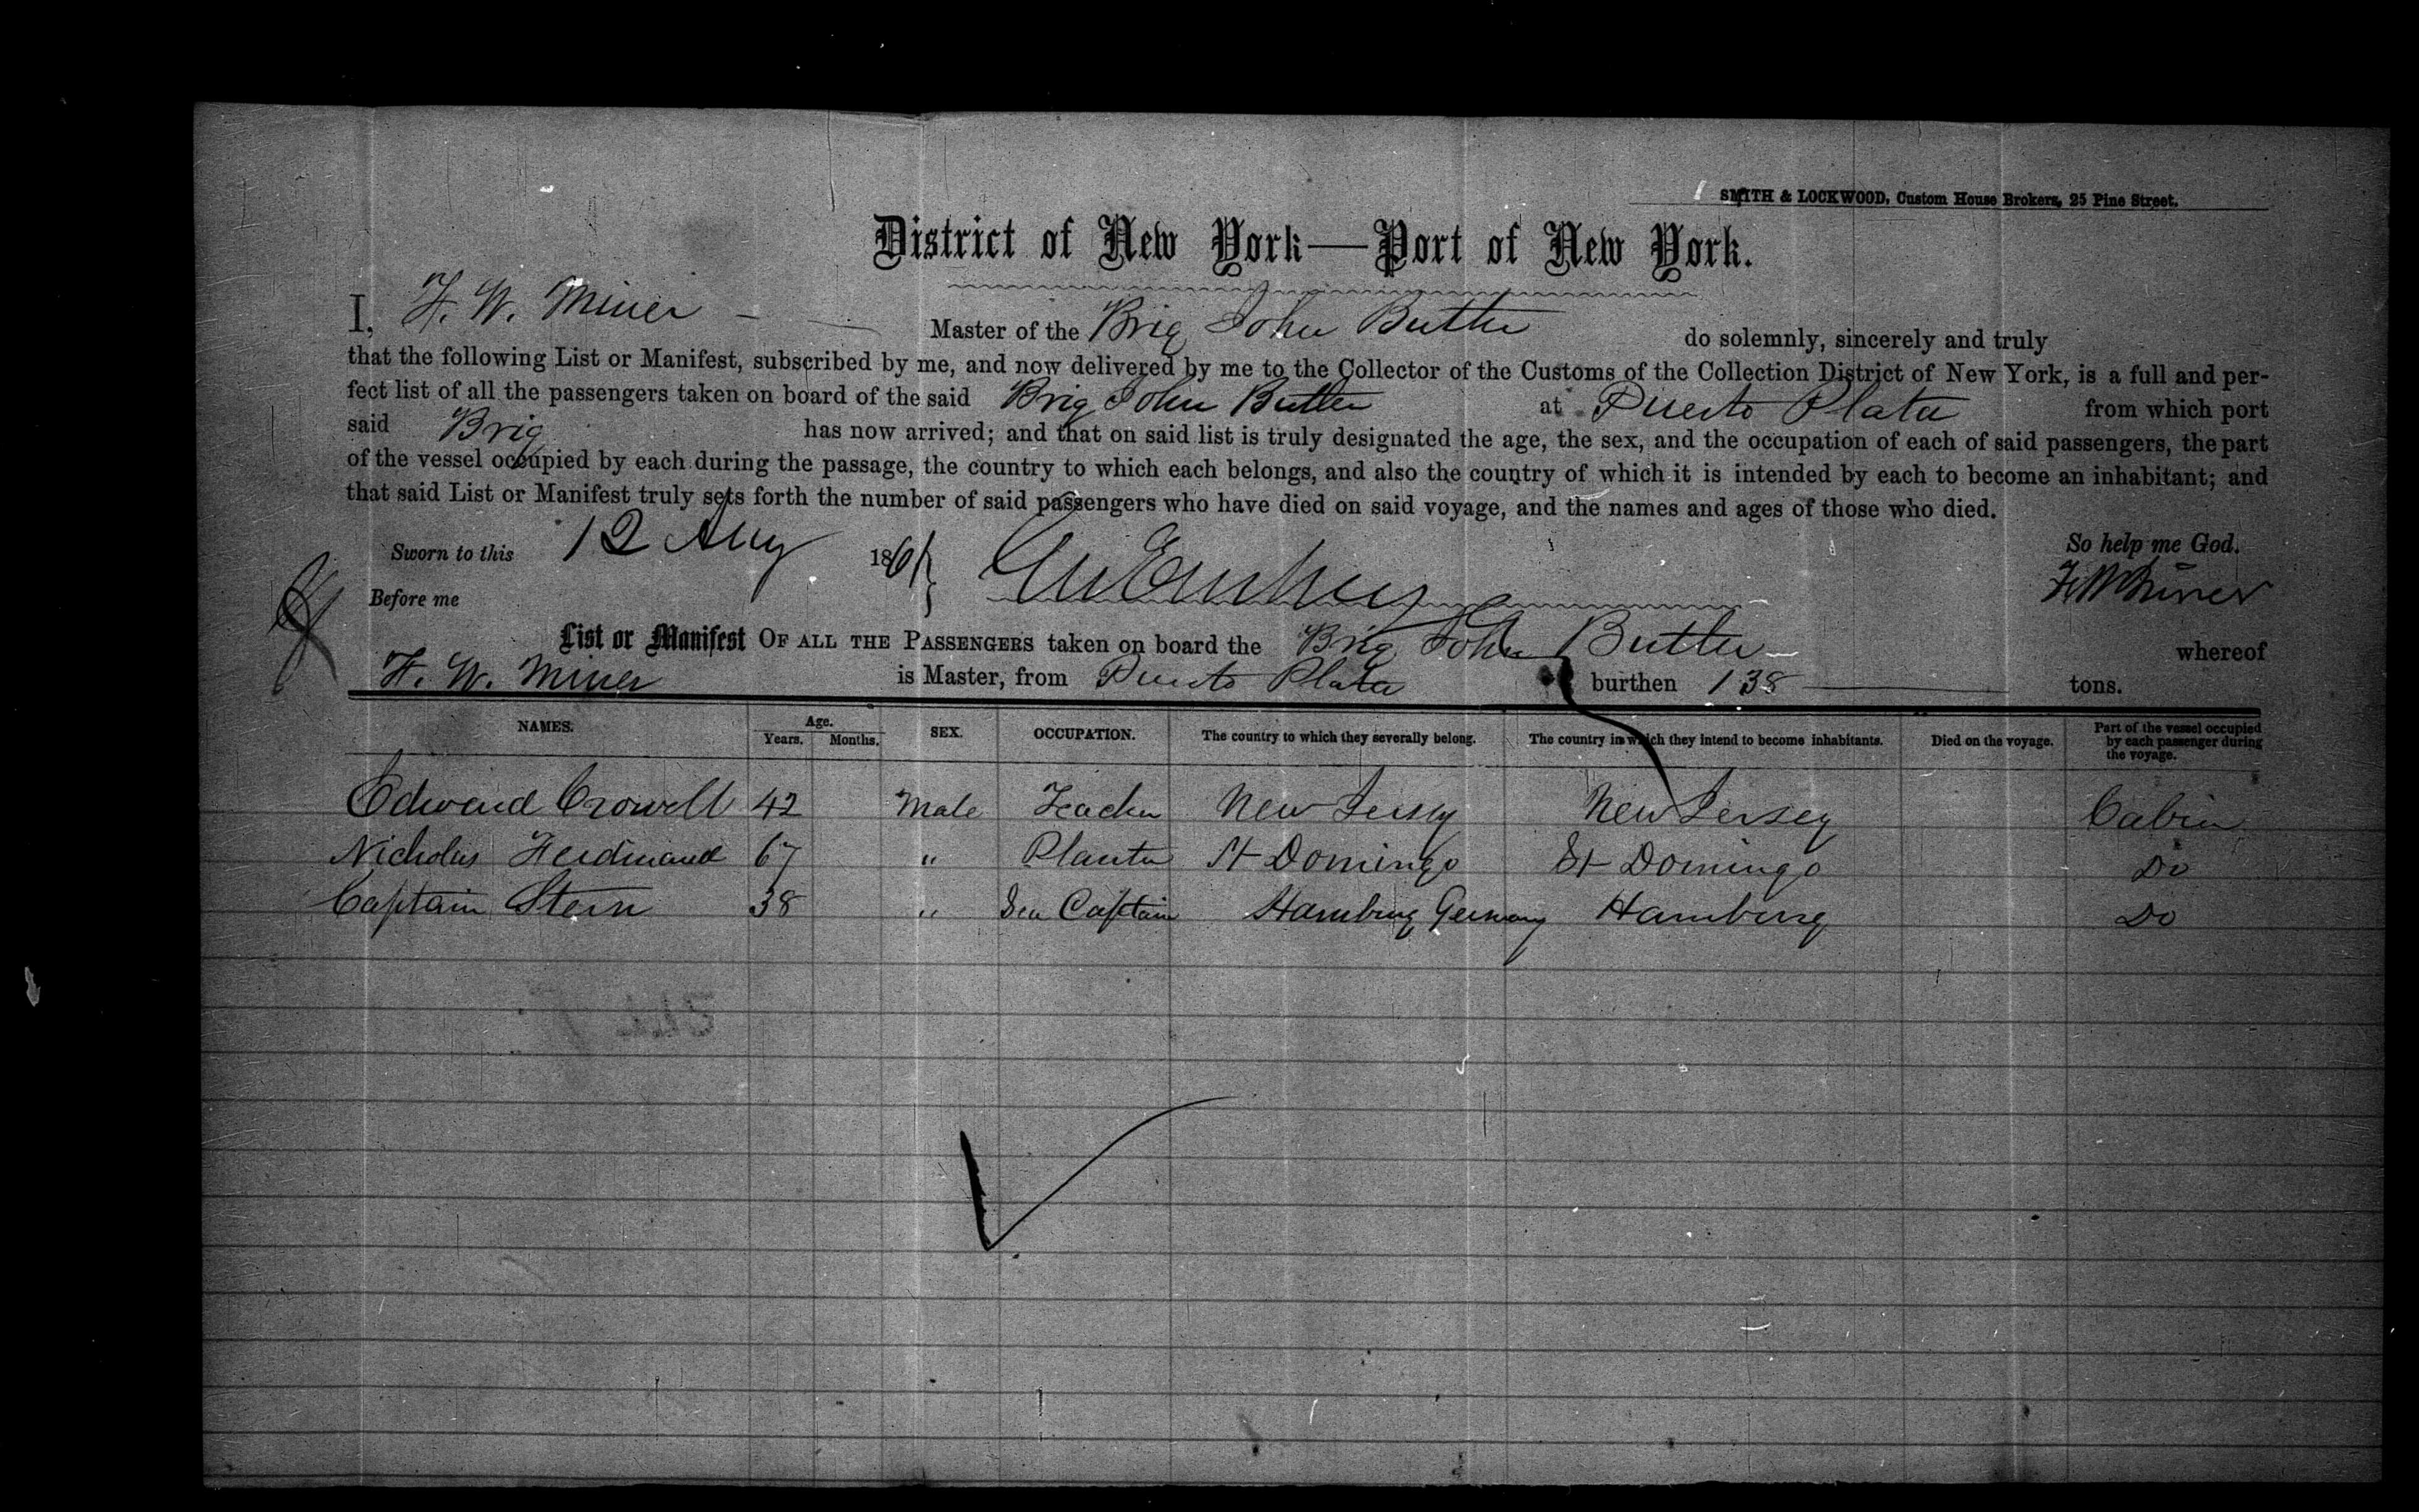 SMITH & LOCKWOOD, Custom House Brokers, 25 Pine Street.
District of New York—Port of New York.
I, F. W. Miner Master of the Brig John Butler do solemnly, sincerely and truly
that the following List or Manifest, subscribed by me, and now delivered by me to the Collector of the Customs of the Collection District of New York, is a full and per-
fect list of all the passengers taken on board of the said Brig John Butler at Puerto Plata from which port
said Brig has now arrived; and that on said list is truly designated the age, the sex, and the occupation of each of said passengers, the part
of the vessel occupied by each during the passage, the country to which each belongs, and also the country of which it is intended by each to become an inhabitant; and
that said List or Manifest truly sets forth the number of said passengers who have died on said voyage, and the names and ages of those who died.
Sworn to this 12 Aug 1861 } So help me God.
Before me F W Miner
List or Manifest OF ALL THE PASSENGERS taken on board the Brig John Butler whereof
F. W. Miner is Master, from Puerto Plata burthen 138 tons.
NAMES. Age. Years. Months. SEX. OCCUPATION. The country to which they severally belong. The country in which they intend to become inhabitants. Died on the voyage. Part of the vessel occupied by each passenger during the voyage.
Edward Crowell 42 Male Teacher New Jersey New Jersey Cabin
Nicholas Ferdinand 67 " Planter St Domingo St Domingo Do
Captain Stern 38 " Sea Captain Hamburg Germany Hamburg Do